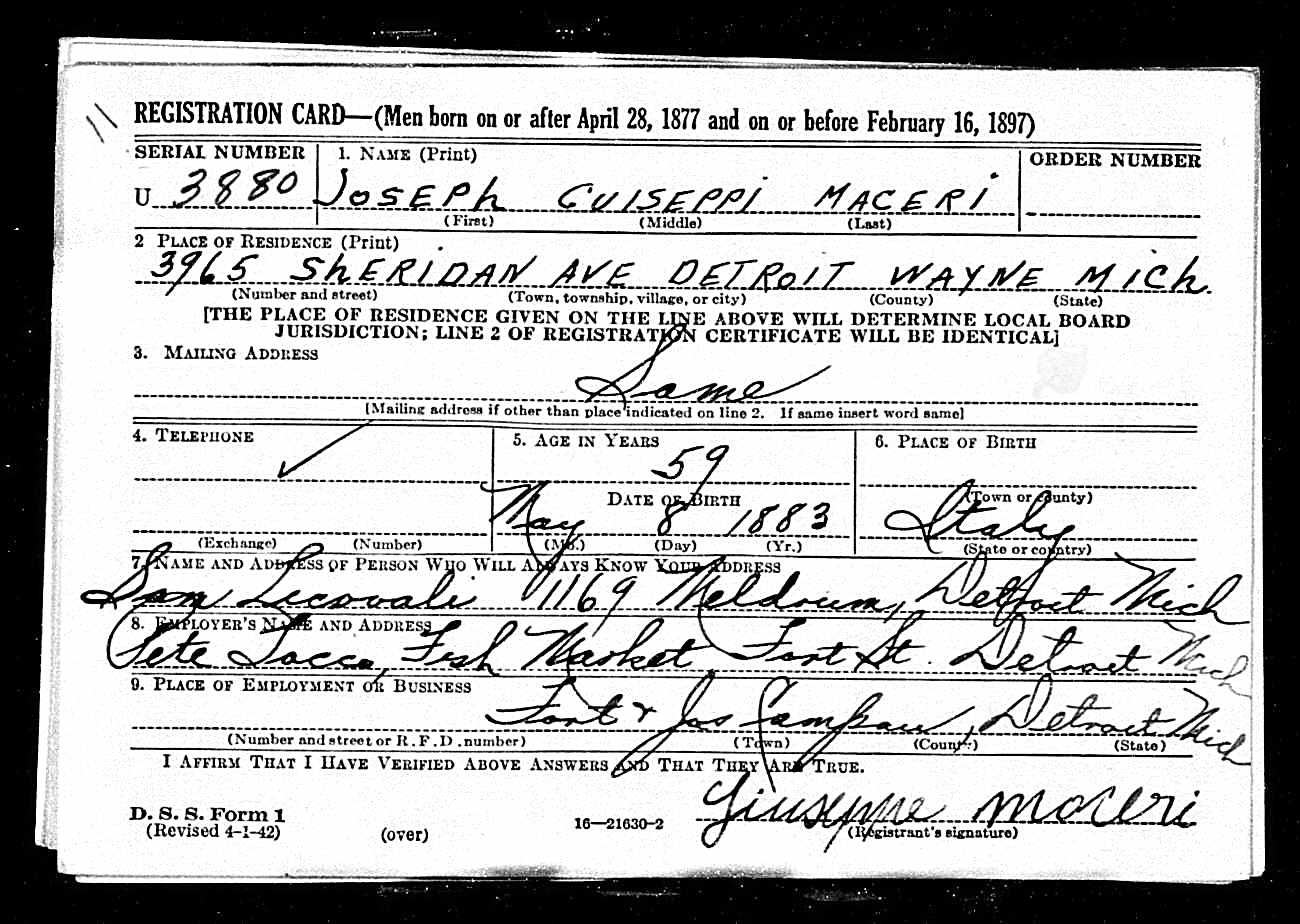 REGISTRATION CARD—(Men born on or after April 28, 1877 and on or before February 16, 1897)
SERIAL NUMBER 1. NAME (Print) ORDER NUMBER
U 3880 JOSEPh GUISEPPi MACERi
(First) (Middle) (Last)
2 PLACE OF RESIDENCE (Print)
3965 ShERIDAN AVE DETROIT WAYNE Mich.
(Number and street) (Town, township, village, or city) (County) (State)
[THE PLACE OF RESIDENCE GIVEN ON THE LINE ABOVE WILL DETERMINE LOCAL BOARD
JURISDICTION; LINE 2 OF REGISTRATION CERTIFICATE WILL BE IDENTICAL]
3. MAILING ADDRESS
Same
[Mailing address if other than place indicated on line 2. If same insert word same]
4. TELEPHONE 5. AGE IN YEARS 6. PLACE OF BIRTH
59
DATE OF BIRTH (Town or county)
May 8 1883 Italy
(Exchange) (Number) (Mo.) (Day) (Yr.) (State or country)
7. NAME AND ADDRESS OF PERSON WHO WILL ALWAYS KNOW YOUR ADDRESS
Sam Licovali 1169 Meldrum, Detroit Mich
8. EMPLOYER'S NAME AND ADDRESS
Pete Tocco, Fish Market Fort St. Detroit Mich
9. PLACE OF EMPLOYMENT OR BUSINESS
Fort & Jos Campau, Detroit Mich
(Number and street or R.F.D. number) (Town) (County) (State)
I AFFIRM THAT I HAVE VERIFIED ABOVE ANSWERS AND THAT THEY ARE TRUE.
Giuseppe Maceri
D. S. S. Form 1
(Revised 4-1-42) (over) 16—21630-2 (Registrant's signature)